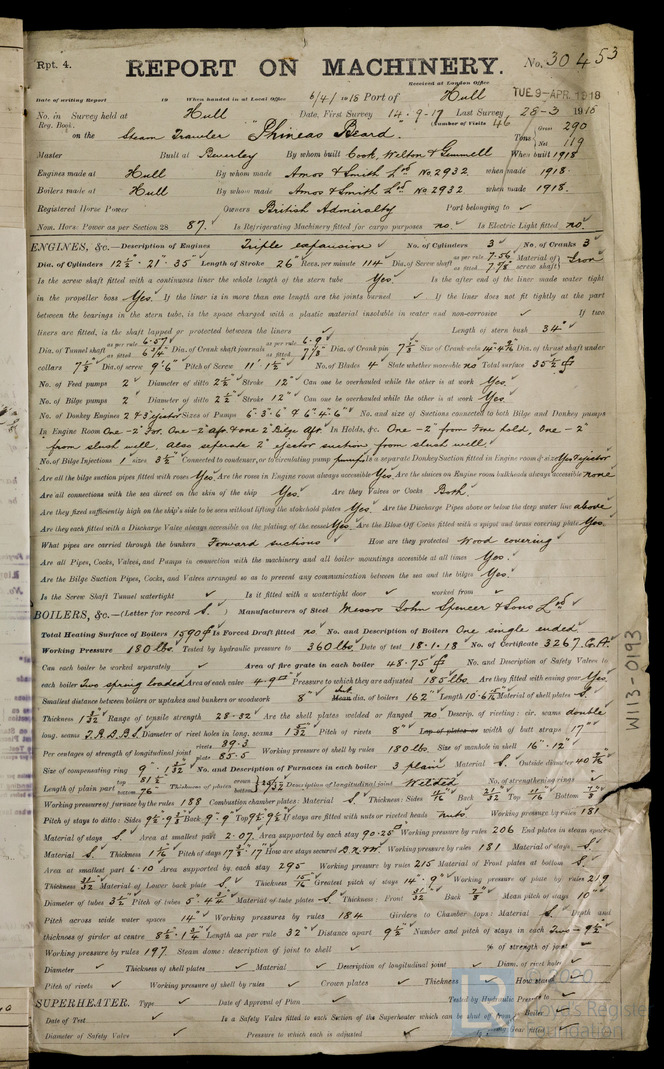 Rpt. 4.
REPORT ON MACHINERY.
No. 30453
Received at London Office
TUE. 9-APR. 1918
Date of writing Report 19 When handed in at Local Office 6/4/1918 Port of Hull
No. in Survey held at Hull Date, First Survey 14-9-17 Last Survey 25-3 1918
Reg. Book. (Number of Visits 46
on the Steam Trawler "Phineas Beard. Tons Gross 290 Net 119
Master Built at Beverley By whom built Cook, Welton & Gemmell When built 1918
Engines made at Hull By whom made Amos & Smith Ltd No. 2932 when made 1918
Boilers made at Hull By whom made Amos & Smith Ltd No. 2932 when made 1918
Registered Horse Power Owners British Admiralty Port belonging to
Nom. Horse Power as per Section 28 87. Is Refrigerating Machinery fitted for cargo purposes no. Is Electric Light fitted no.
ENGINES, &c.—Description of Engines Triple expansion No. of Cylinders 3 No. of Cranks 3
Dia. of Cylinders 12½" - 21" - 35" Length of Stroke 26" Revs. per minute 114 Dia. of Screw shaft as per rule 7.56 as fitted 7⅞" Material of screw shaft Iron
Is the screw shaft fitted with a continuous liner the whole length of the stern tube Yes. Is the after end of the liner made water tight
in the propeller boss Yes. If the liner is in more than one length are the joints burned ✓ If the liner does not fit tightly at the part
between the bearings in the stern tube, is the space charged with a plastic material insoluble in water and non-corrosive ✓ If two
liners are fitted, is the shaft lapped or protected between the liners ✓ Length of stern bush 34"
Dia. of Tunnel shaft as per rule 6.57 as fitted 6¾" Dia. of Crank shaft journals as per rule 6.9 as fitted 7⅛ Dia. of Crank pin 7⅛ Size of Crank webs Dia. of thrust shaft under
collars 7⅛" Dia. of screw 9'-6" Pitch of Screw 11'-1½" No. of Blades 4 State whether moveable no Total surface 35½
No. of Feed pumps 2 Diameter of ditto 2½" Stroke 12" Can one be overhauled while the other is at work Yes
No. of Bilge pumps 2 Diameter of ditto 2½" Stroke 12" Can one be overhauled while the other is at work Yes
No. of Donkey Engines 2 & 3" ejector Sizes of Pumps 6-3-6 & 6-4-6" No. and size of Suctions connected to both Bilge and Donkey pumps
In Engine Room One-2" For. One-2" Aft. & one 2" Bilge Aft. In Holds, &c. One-2" from Fore hold, One-2"
from slush well. Also seperate 2" ejector suction from slush well.
No. of Bilge Injections 1 sizes 3½" Connected to condenser, or to circulating pump pump Is a separate Donkey Suction fitted in Engine room & size Yes 3" ejector
Are all the bilge suction pipes fitted with roses Yes. Are the roses in Engine room always accessible Yes. Are the sluices on Engine room bulkheads always accessible none
Are all connections with the sea direct on the skin of the ship Yes. Are they Valves or Cocks Both.
Are they fixed sufficiently high on the ship's side to be seen without lifting the stokehold plates Yes. Are the Discharge Pipes above or below the deep water line above
Are they each fitted with a Discharge Valve always accessible on the plating of the vessel Yes. Are the Blow Off Cocks fitted with a spigot and brass covering plate Yes.
What pipes are carried through the bunkers Forward suctions How are they protected Wood covering
Are all Pipes, Cocks, Valves, and Pumps in connection with the machinery and all boiler mountings accessible at all times Yes.
Are the Bilge Suction Pipes, Cocks, and Valves arranged so as to prevent any communication between the sea and the bilges Yes.
Is the Screw Shaft Tunnel watertight ✓ Is it fitted with a watertight door ✓ worked from ✓
BOILERS, &c.—(Letter for record S. ) Manufacturers of Steel Messrs John Spencer & Sons Ltd
Total Heating Surface of Boilers 1590 Is Forced Draft fitted no No. and Description of Boilers One single ended
Working Pressure 180 lbs. Tested by hydraulic pressure to 360 lbs Date of test 18.1.18 No. of Certificate 3267.
Can each boiler be worked separately ✓ Area of fire grate in each boiler 48.75 No. and Description of Safety Valves to
each boiler Two spring loaded Area of each valve 4.9 Pressure to which they are adjusted 185 lbs. Are they fitted with easing gear Yes.
Smallest distance between boilers or uptakes and bunkers or woodwork 8" Mean dia. of boilers 162" Length 10-6 Material of shell plates S.
Thickness 1 3/32 Range of tensile strength 28-32 Are the shell plates welded or flanged no Descrip. of riveting: cir. seams double
long. seams T.R.D.B.S. Diameter of rivet holes in long. seams Pitch of rivets 8" Lap of plates or width of butt straps 17"
Per centages of strength of longitudinal joint rivets 89.3 plate 85.5 Working pressure of shell by rules 180 lbs. Size of manhole in shell 16" - 12"
Size of compensating ring 9" - 1 3/32 No. and Description of Furnaces in each boiler 3 plain Material S. Outside diameter
Length of plain part top 81½ bottom 76" Thickness of plates crown bottom Description of longitudinal joint Welded No. of strengthening rings
Working pressure of furnace by the rules 188 Combustion chamber plates: Material S. Thickness: Sides Back Top Bottom ⅞"
Pitch of stays to ditto: Sides Back 9"-9" Top If stays are fitted with nuts or riveted heads nuts Working pressure by rules 181
Material of stays S. Area at smallest part 2.07 Area supported by each stay 90.25 Working pressure by rules 206 End plates in steam space:
Material S. Thickness Pitch of stays How are stays secured D.N.&W. Working pressure by rules 181 Material of stays S.
Area at smallest part 6.10 Area supported by each stay 295 Working pressure by rules 215 Material of Front plates at bottom S.
Thickness 31/32 Material of Lower back plate S. Thickness 15/16 Greatest pitch of stays 14"-9" Working pressure of plate by rules 219
Diameter of tubes 3½" Pitch of tubes Material of tube plates S. Thickness: Front 31/32 Back ⅞" Mean pitch of stays 10"
Pitch across wide water spaces 14" Working pressures by rules 184 Girders to Chamber tops: Material S. Depth and
thickness of girder at centre 8½ - 1¾ Length as per rule 32" Distance apart 9½ Number and pitch of stays in each Two - 9½
Working pressure by rules 197. Steam dome: description of joint to shell ✓ % of strength of joint ✓
Diameter ✓ Thickness of shell plates ✓ Material ✓ Description of longitudinal joint ✓ Diam. of rivet holes ✓
Pitch of rivets ✓ Working pressure of shell by rules ✓ Crown plates ✓ Thickness ✓ How stayed
SUPERHEATER. Type ✓ Date of Approval of Plan ✓ Tested by Hydraulic Pressure to
Date of Test ✓ Is a Safety Valve fitted to each Section of the Superheater which can be shut off from Boiler
Diameter of Safety Valve ✓ Pressure to which each is adjusted ✓ Is Easing Gear fitted
W113-0193
LR
© 2020
Lloyd's Register
Foundation